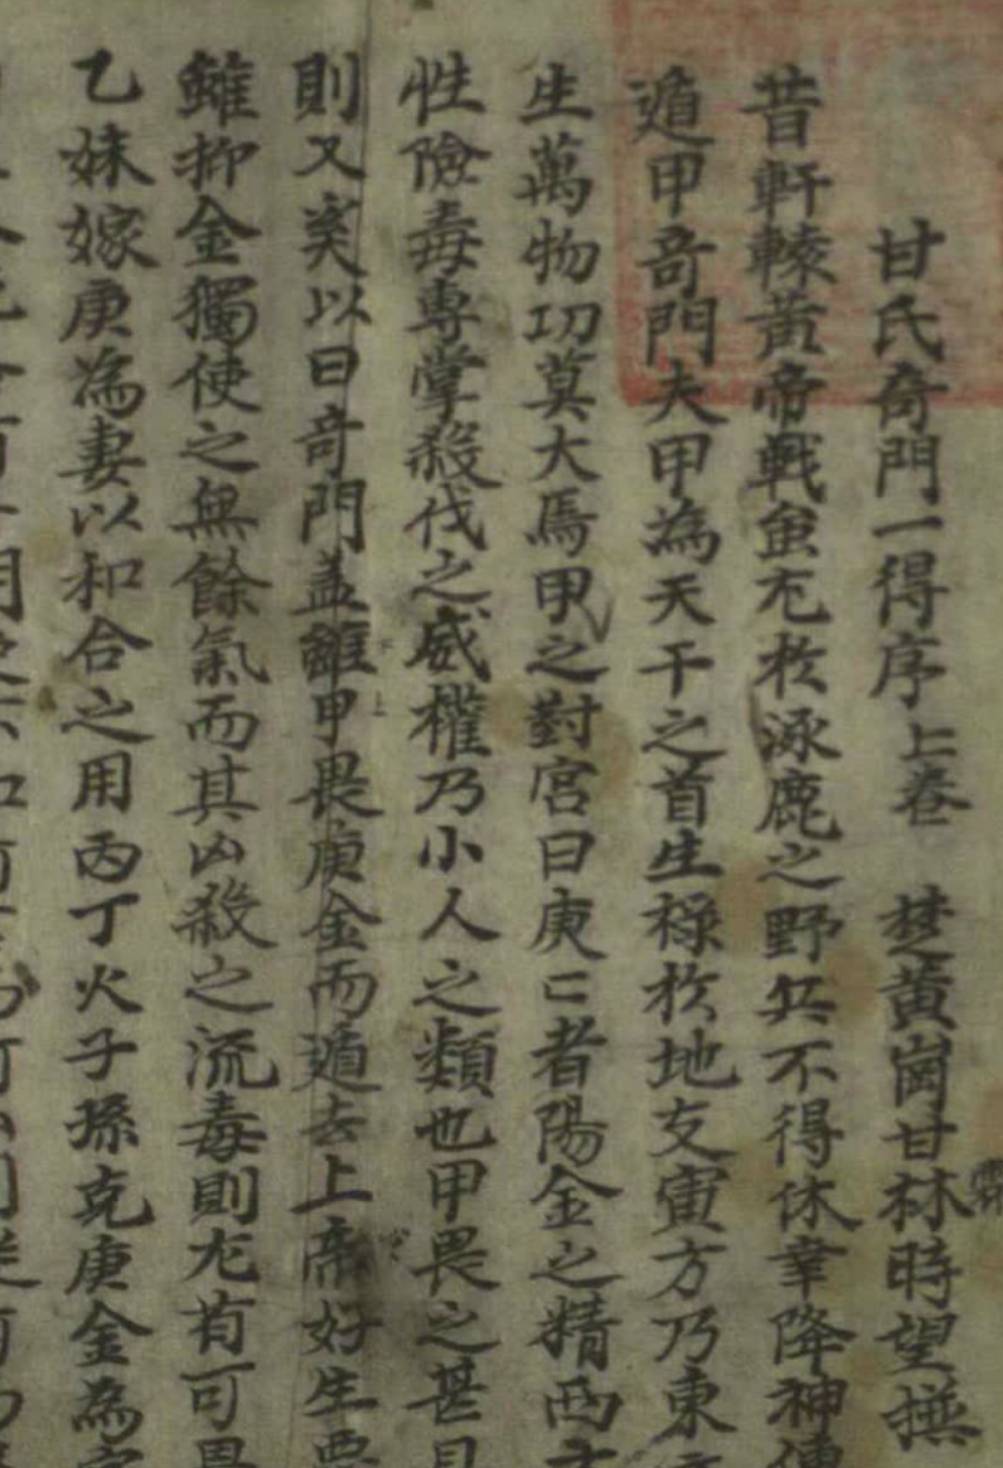 甘氏奇門一得序上卷 楚黃崗甘霖時望撰
昔軒轅黃帝戰蚩尤於涿鹿之野兵不得休幸降神
遁甲奇門夫甲為天干之首生祿於地支寅方乃東
生萬物功莫大焉甲之對宮曰庚庚者陽金之精西
性險毒專掌殺伐之威權乃小人之類也甲畏之甚
則又奚以曰奇門盖雖甲畏庚金而遁去上帝好生
雖抑金獨使之無餘氣而其凶殺之流毒則尤有可畏
乙妹嫁庚為妻以和合之用丙丁火子孫克庚金為